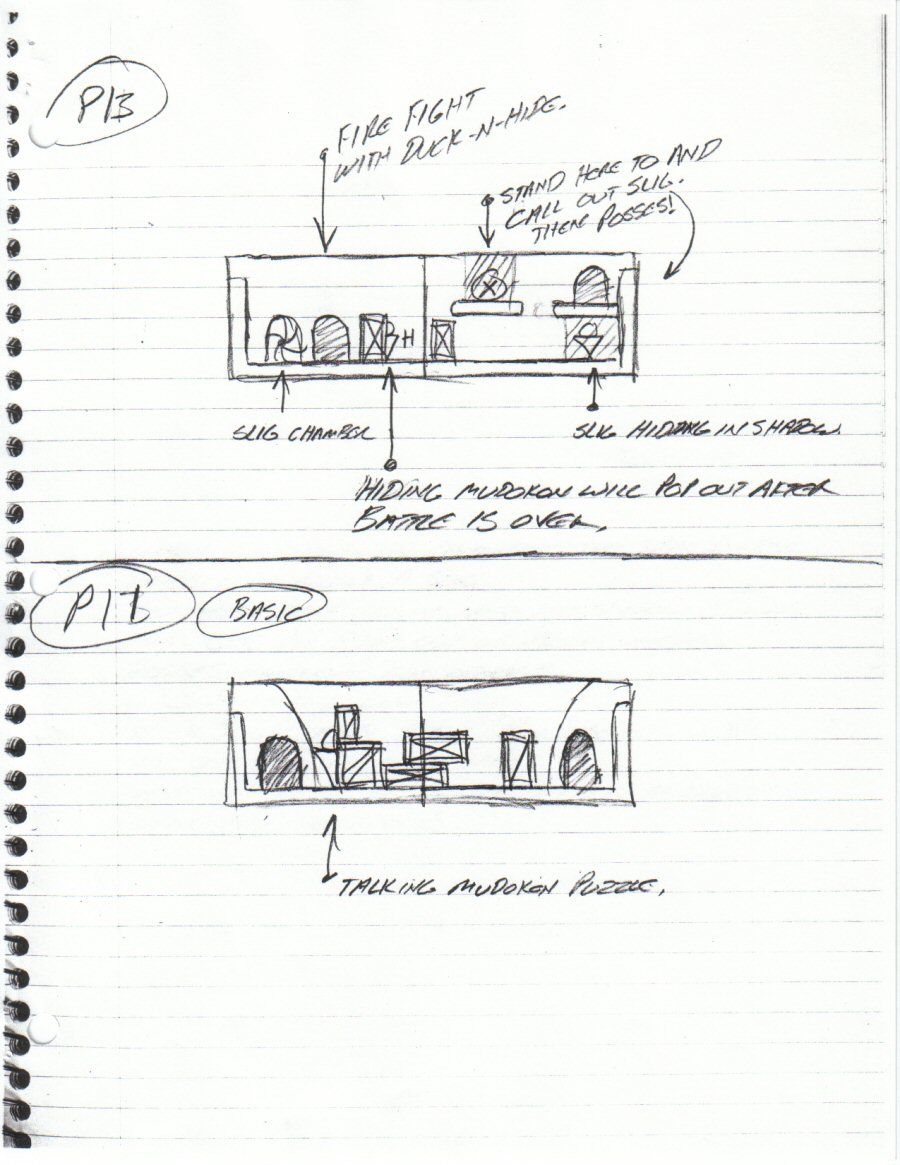 P13
FIRE FIGHT
WITH DUCK-N-HIDE.
STAND HERE TO AND
CALL OUT SLIG.
THEN POSSES!
X
H
SLIG CHAMBER
SLIG HIDDING IN SHADOW.
HIDING MUDOKON WILL POP OUT AFTER
BATTLE IS OVER.
BASIC
TALKING MUDOKON PUZZLE.